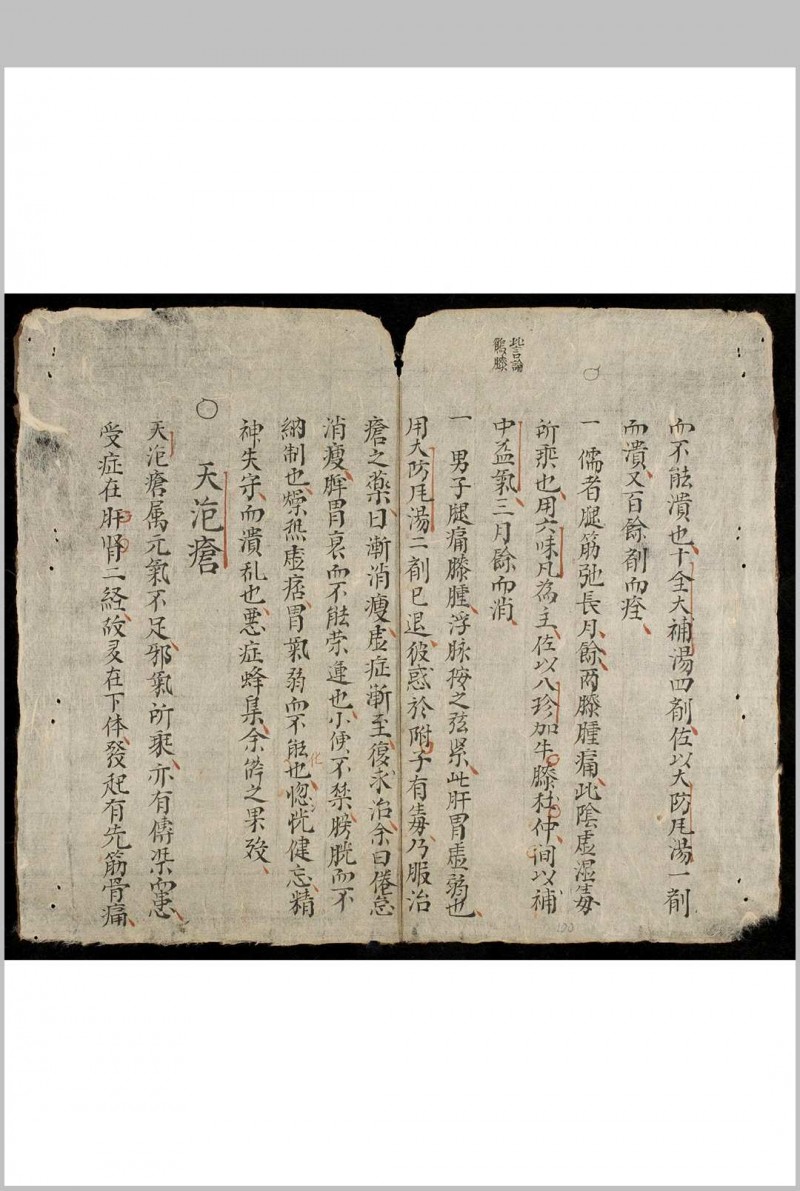 而不能潰也十全大補湯四剤佐以大防风湯一剤
而潰又百餘剤而痊
一儒者腿筋弛長月餘兩膝腫痛此陰虛湿毒
所乘也用六味凡為主佐以八珍加牛膝杜仲间以補
中益氣三月餘而消
此言論
鶴膝
一男子腿痛膝腫浮脉按之弦紧此肝胃虛弱也
用大防风湯二剤已退彼惑於附子有毒乃服治
瘡之藥日漸消瘦虛症漸至復求治余曰倦怠
消瘦脾胃衰而不能荣運也小便不禁膀胱而不
納制也燥热虛痞胃氣弱而不能化也惚恍健忘精
神失守而潰乱也悪症蜂集余辞之果殁
天疱瘡
天疱瘡属元氣不足邪氣所乘亦有傳染而患
受症在肝肾二経故多在下体發起有先筋骨痛